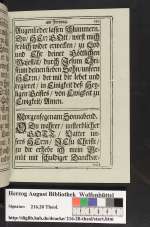 am Freytag.
Augenlieder lassen schlummern.
Du HErr GOtt, werd mich
frölich wider erwecken, zu Lob
und Ehr deiner Göttlichen
Majestät, durch Jesum Christum
deinen lieben Sohn, unsern
HErrn, der mit dir lebet und
regieret, in Einigkeit des Heiligen
Geistes, von Ewigkeit zu
Ewigkeit, Amen.
Morgensegen am Sonnabend.
O Du wahrer, unsterblicher
GOTT, Vatter unsers
HErrn, JEsu Christi,
zu dir erhebe ich mein Gemüt
mit schuldiger Danckbar-
Herzog August Bibliothek Wolfenbüttel
Signatur: 216.28 Theol.
http://diglib.hab.de/drucke/216-28-theol/start.htm